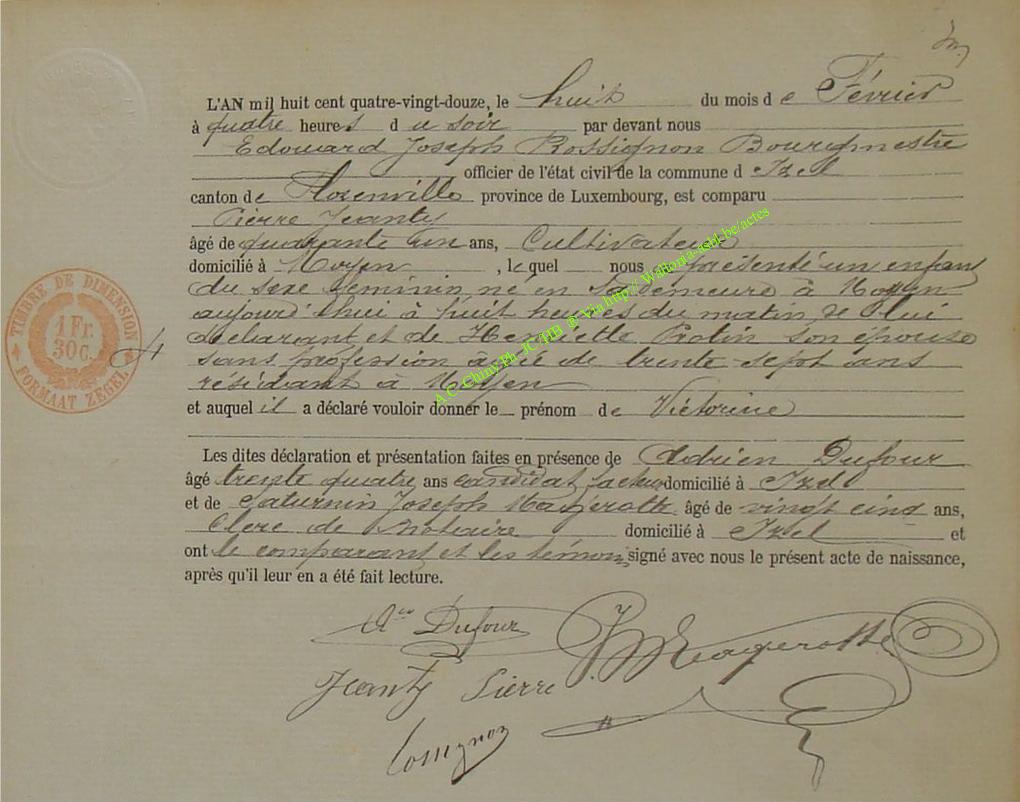 L'AN mil huit cent quatre-vingt-douze, le huit du mois de Février
à quatre heures du soir par devant nous
Edouard Joseph Rossignon Bourgmestre
officier de l'état civil de la commune d Izel
canton de Florenville province de Luxembourg, est comparu
Pierre Jeanty
âgé de quarante un ans, Cultivateur
domicilié à Moyen, lequel nous a présenté un enfant
du sexe féminin né en sa demeure à Moyen
aujourd'hui à huit heures du matin de lui
déclarant et de Henriette Protin son épouse
sans profession âgée de trente sept ans
résidant à Moyen
et auquel il a déclaré vouloir donner le prénom de Victorine
Les dites déclaration et présentation faites en présence de Adrien Dufour
âgé trente quatre ans candidat facteur domicilié à Izel
et de Saturnin Joseph Magerotte âgé de vingt cinq ans,
Clerc de Notaire domicilié à Izel et
ont le comparant et les témoins signé avec nous le présent acte de naissance,
après qu'il leur en a été fait lecture.
Aen Dufour
J. Magerotte
Jeanty Pierre
Rossignon
TIMBRE DE DIMENSION
1 Fr.
30 C.
FORMAAT ZEGEL
A.C-Chiny.Ph JC/HB @ Via http://Wallonia-asbl.be/actes